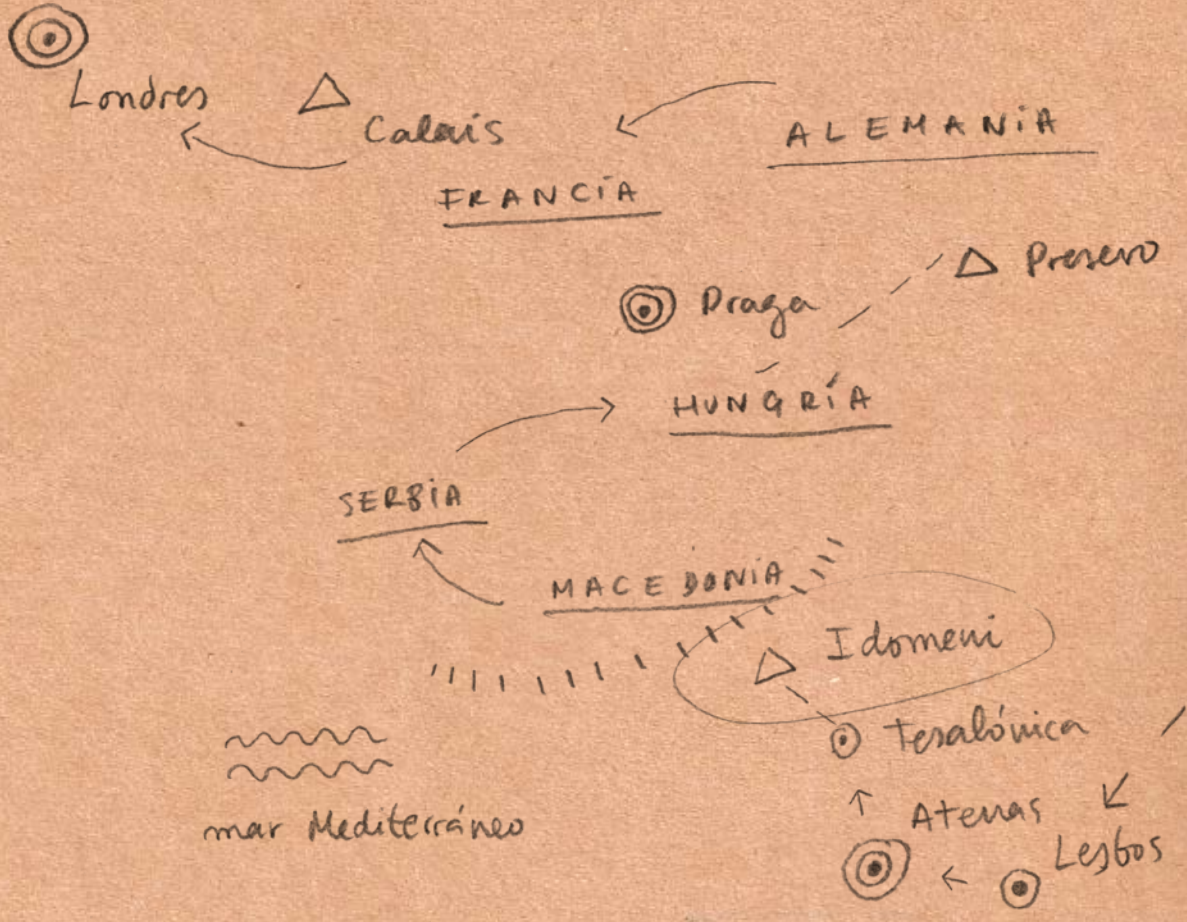 Londres
Calais
ALEMANIA
FRANCIA
Presevo
Praga
HUNGRÍA
SERBIA
MACEDONIA
Idomeni
Tesalónica
mar Mediterráneo
Atenas
Lesbos